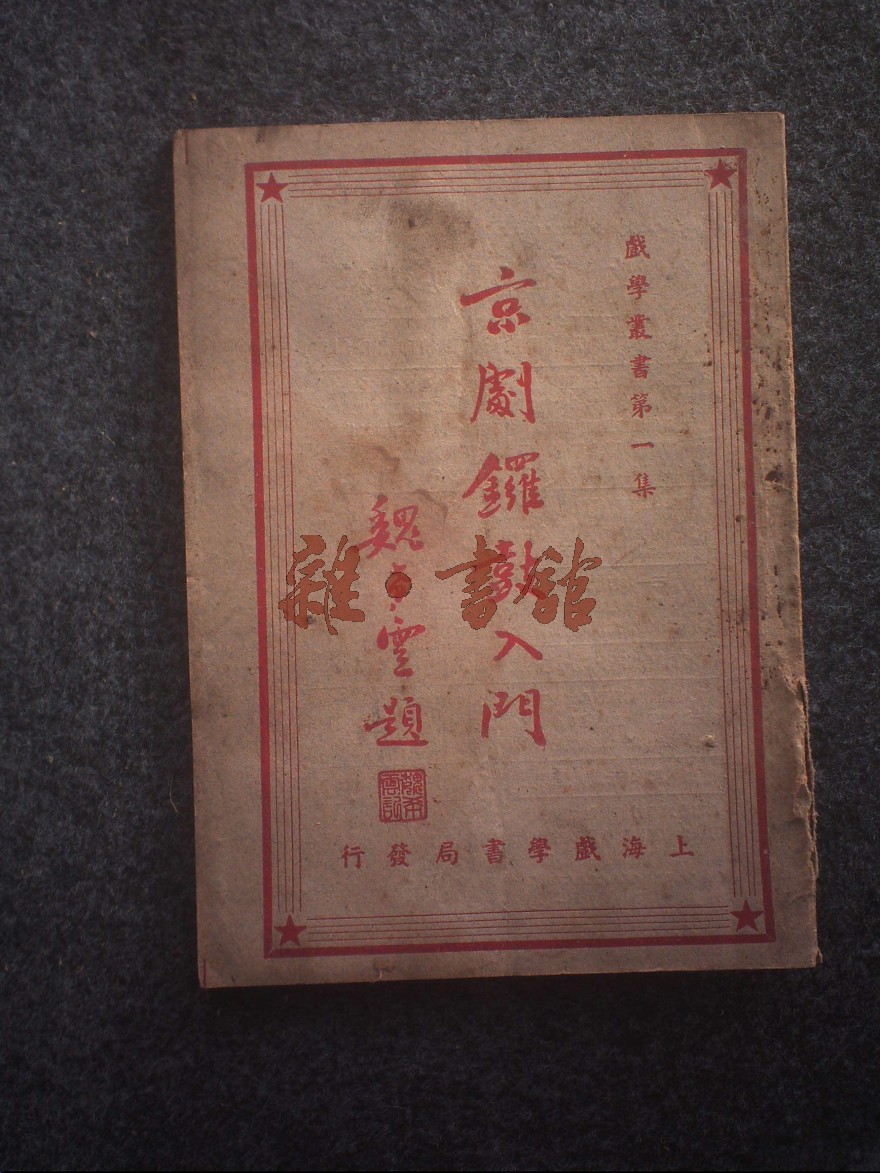 戲學叢書第一集
京劇鑼鼓入門
魏
雲題
上海戲學書局發行
雜·書舘